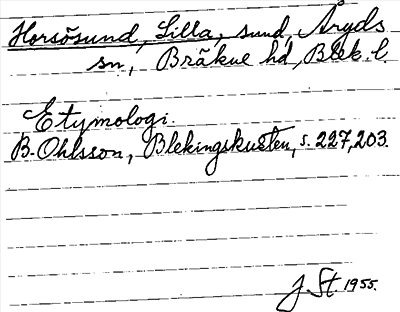 Horsösund, Lilla, sund, Åryds
sn, Bräkne hd, Blek. l.
Etymologi.
B. Ohlsson, Blekingskusten, s. 227, 203.
J St. 1955.